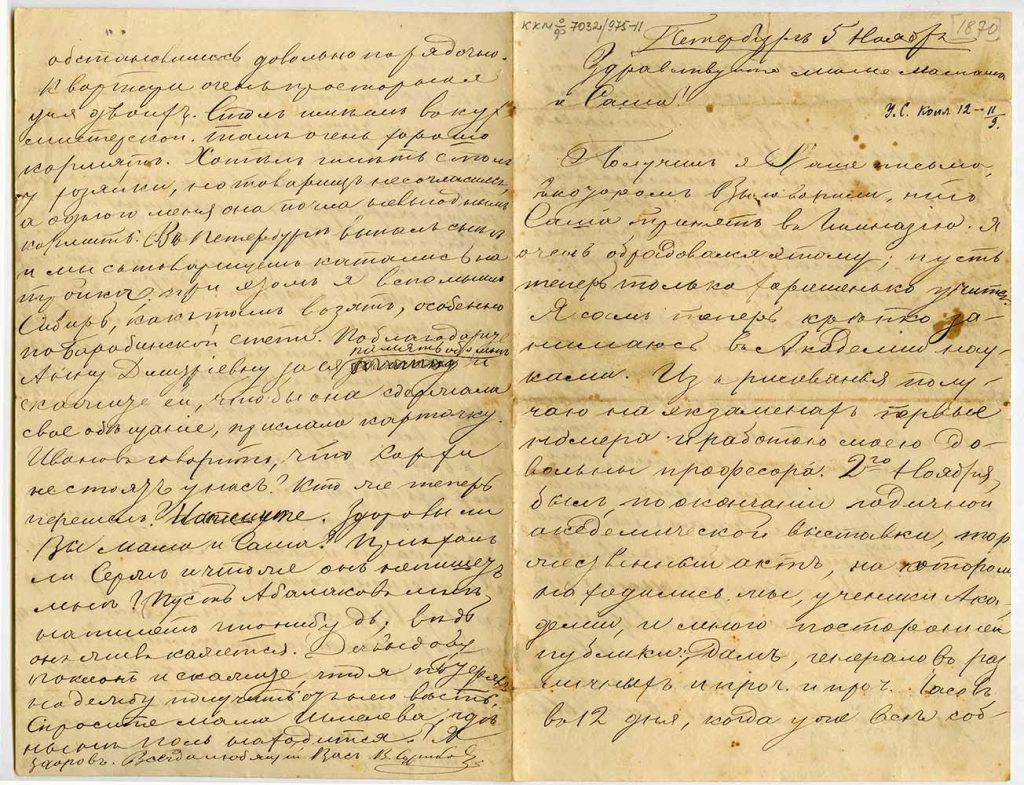 обстановились довольно порядочно.
Квартира очень просторная
для двоихъ. Столъ имѣемъ в кух-
мистерской. Тамъ очень хорошо
кормятъ. Хотѣлъ имѣть столъ
у хозяйки, но товарищъ несогласился,
а одного меня она почла невыгоднымъ
кормить. Въ Петербургѣ выпалъ снѣгъ
и мы съ товарищемъ катались на
тройкѣ. при этомъ я вспомнилъ
Сибирь, какъ тамъ ѣздятъ, особенно
по Барабинской степи. Поблагодарите
память обо мнѣ
Анну Дмитріевну за ея и
скажите ей, чтобы она сдержала
свое обѣщаніе, прислала карточку.
Ивановъ говоритъ, что Корфи
не стоятъ у насъ? Кто же теперь
перешелъ? Напишите. Здоровы ли
Вы мама и Саша? Пріѣхалъ
ли Сержъ и что же онъ не пишетъ
мнѣ? Пусть Абалаковъ мнѣ
напишетъ что нибудь, вѣдь
онъ живъ кажется. Давыдову
поклонъ и скажите, что я потерялъ
надежду получить отъ него вѣсть.
Спросите мама Шмелева, гдѣ
нынѣ находится.! Я
здоровъ. Всегда любящій Васъ В. Суриковъ
ККМ о/ф 7032/975-11
[1870]
Петербургъ 5 Ноября
Здравствуйте милые мамаша
и Саша!
У.С. Копя 12–11/9.
Получилъ я Ваше письмо,
въ которомъ Вы говорили, что
Саша принятъ въ Гимназію. Я
очень обрадовался этому; пусть
теперь только хорошенько учится.
Я самъ теперь крѣпко за-
нимаюсь въ Академіи нау-
ками. Изъ рисованья полу-
чаю на экзаменахъ первые
номера и работою моею до-
вольны професора. 2го Ноября,
былъ, по окончаніи годичной
академической выставки, тор-
жественный актъ, на которомъ
находились мы, ученики Ака-
деміи, и много посторонней
публики: Дамъ, генераловъ раз-
личныхъ и проч. и проч. Часовъ
въ 12 дня, когда уже всѣ соб-